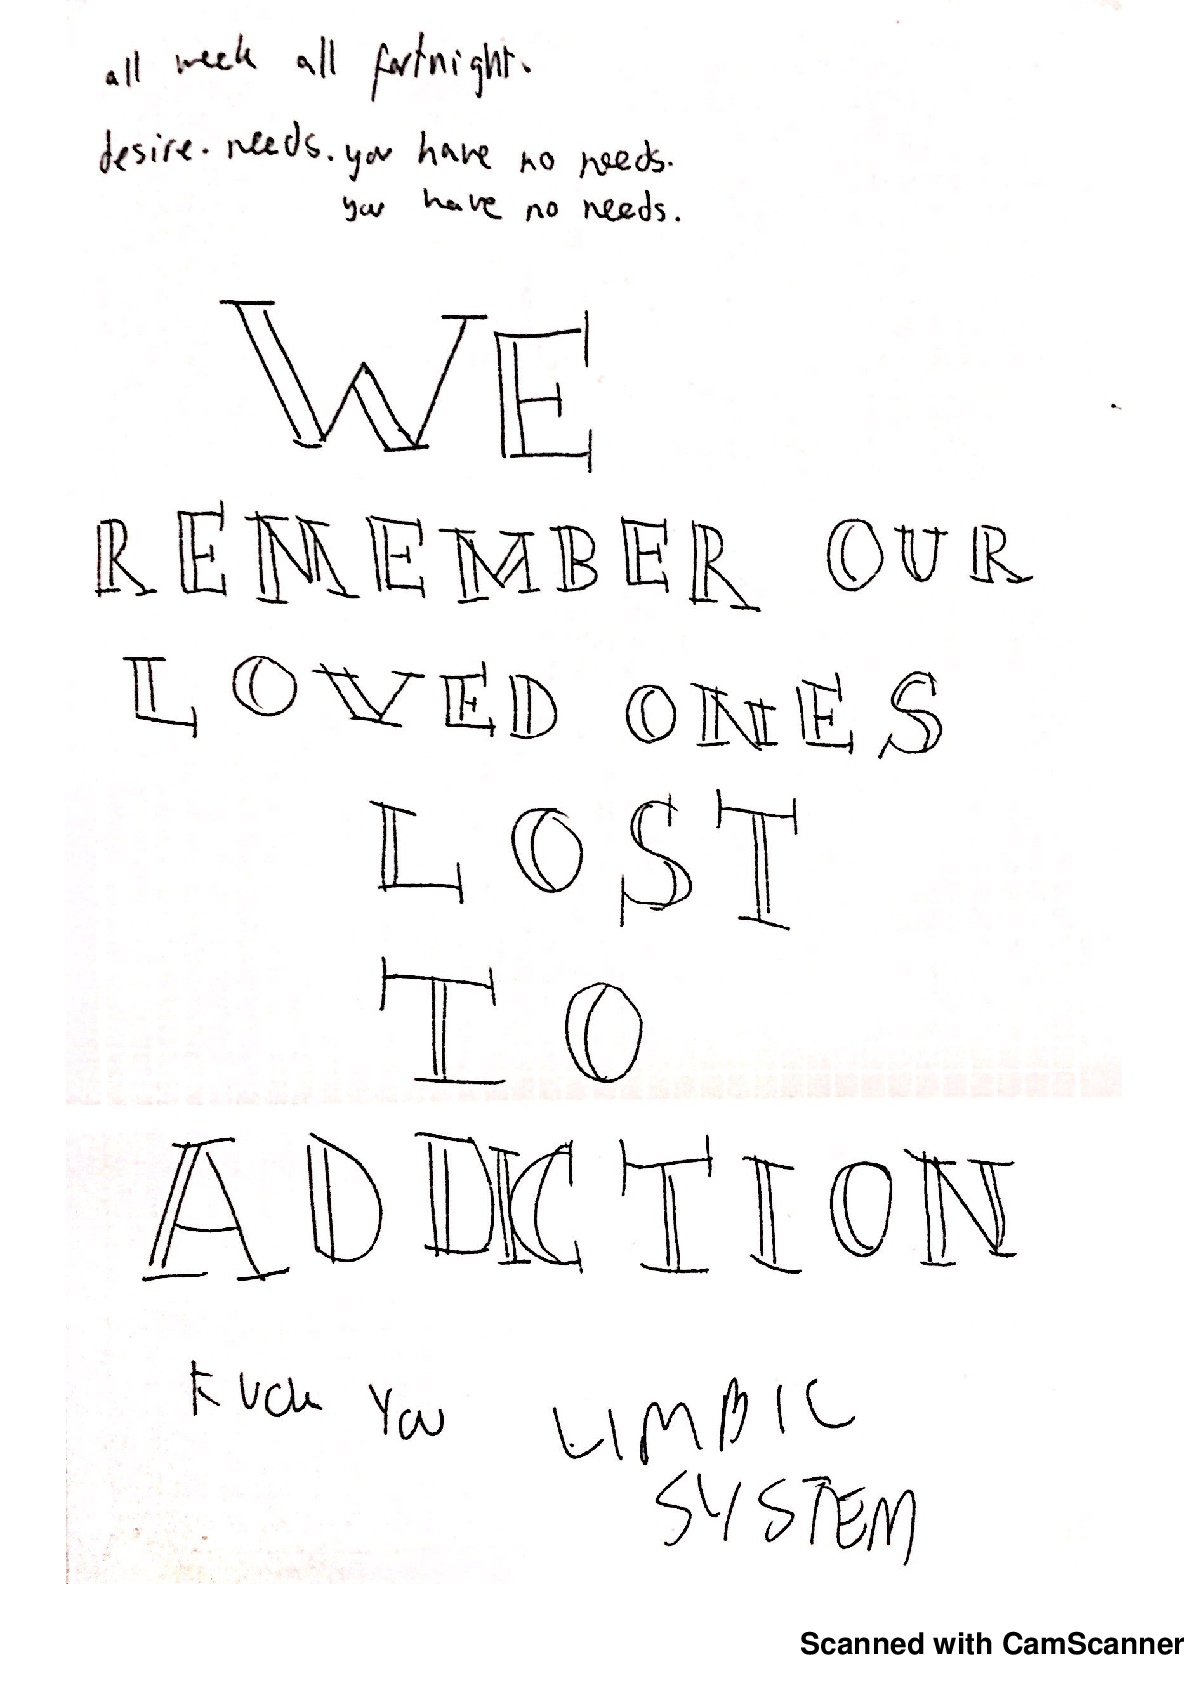 all week all fortnight.
desire. needs. you have no needs.
you have no needs.
WE
REMEMBER OUR
LOVED ONES
LOST
TO
ADDICTION
FUCK YOU LIMBIC
SYSTEM
Scanned with CamScanner